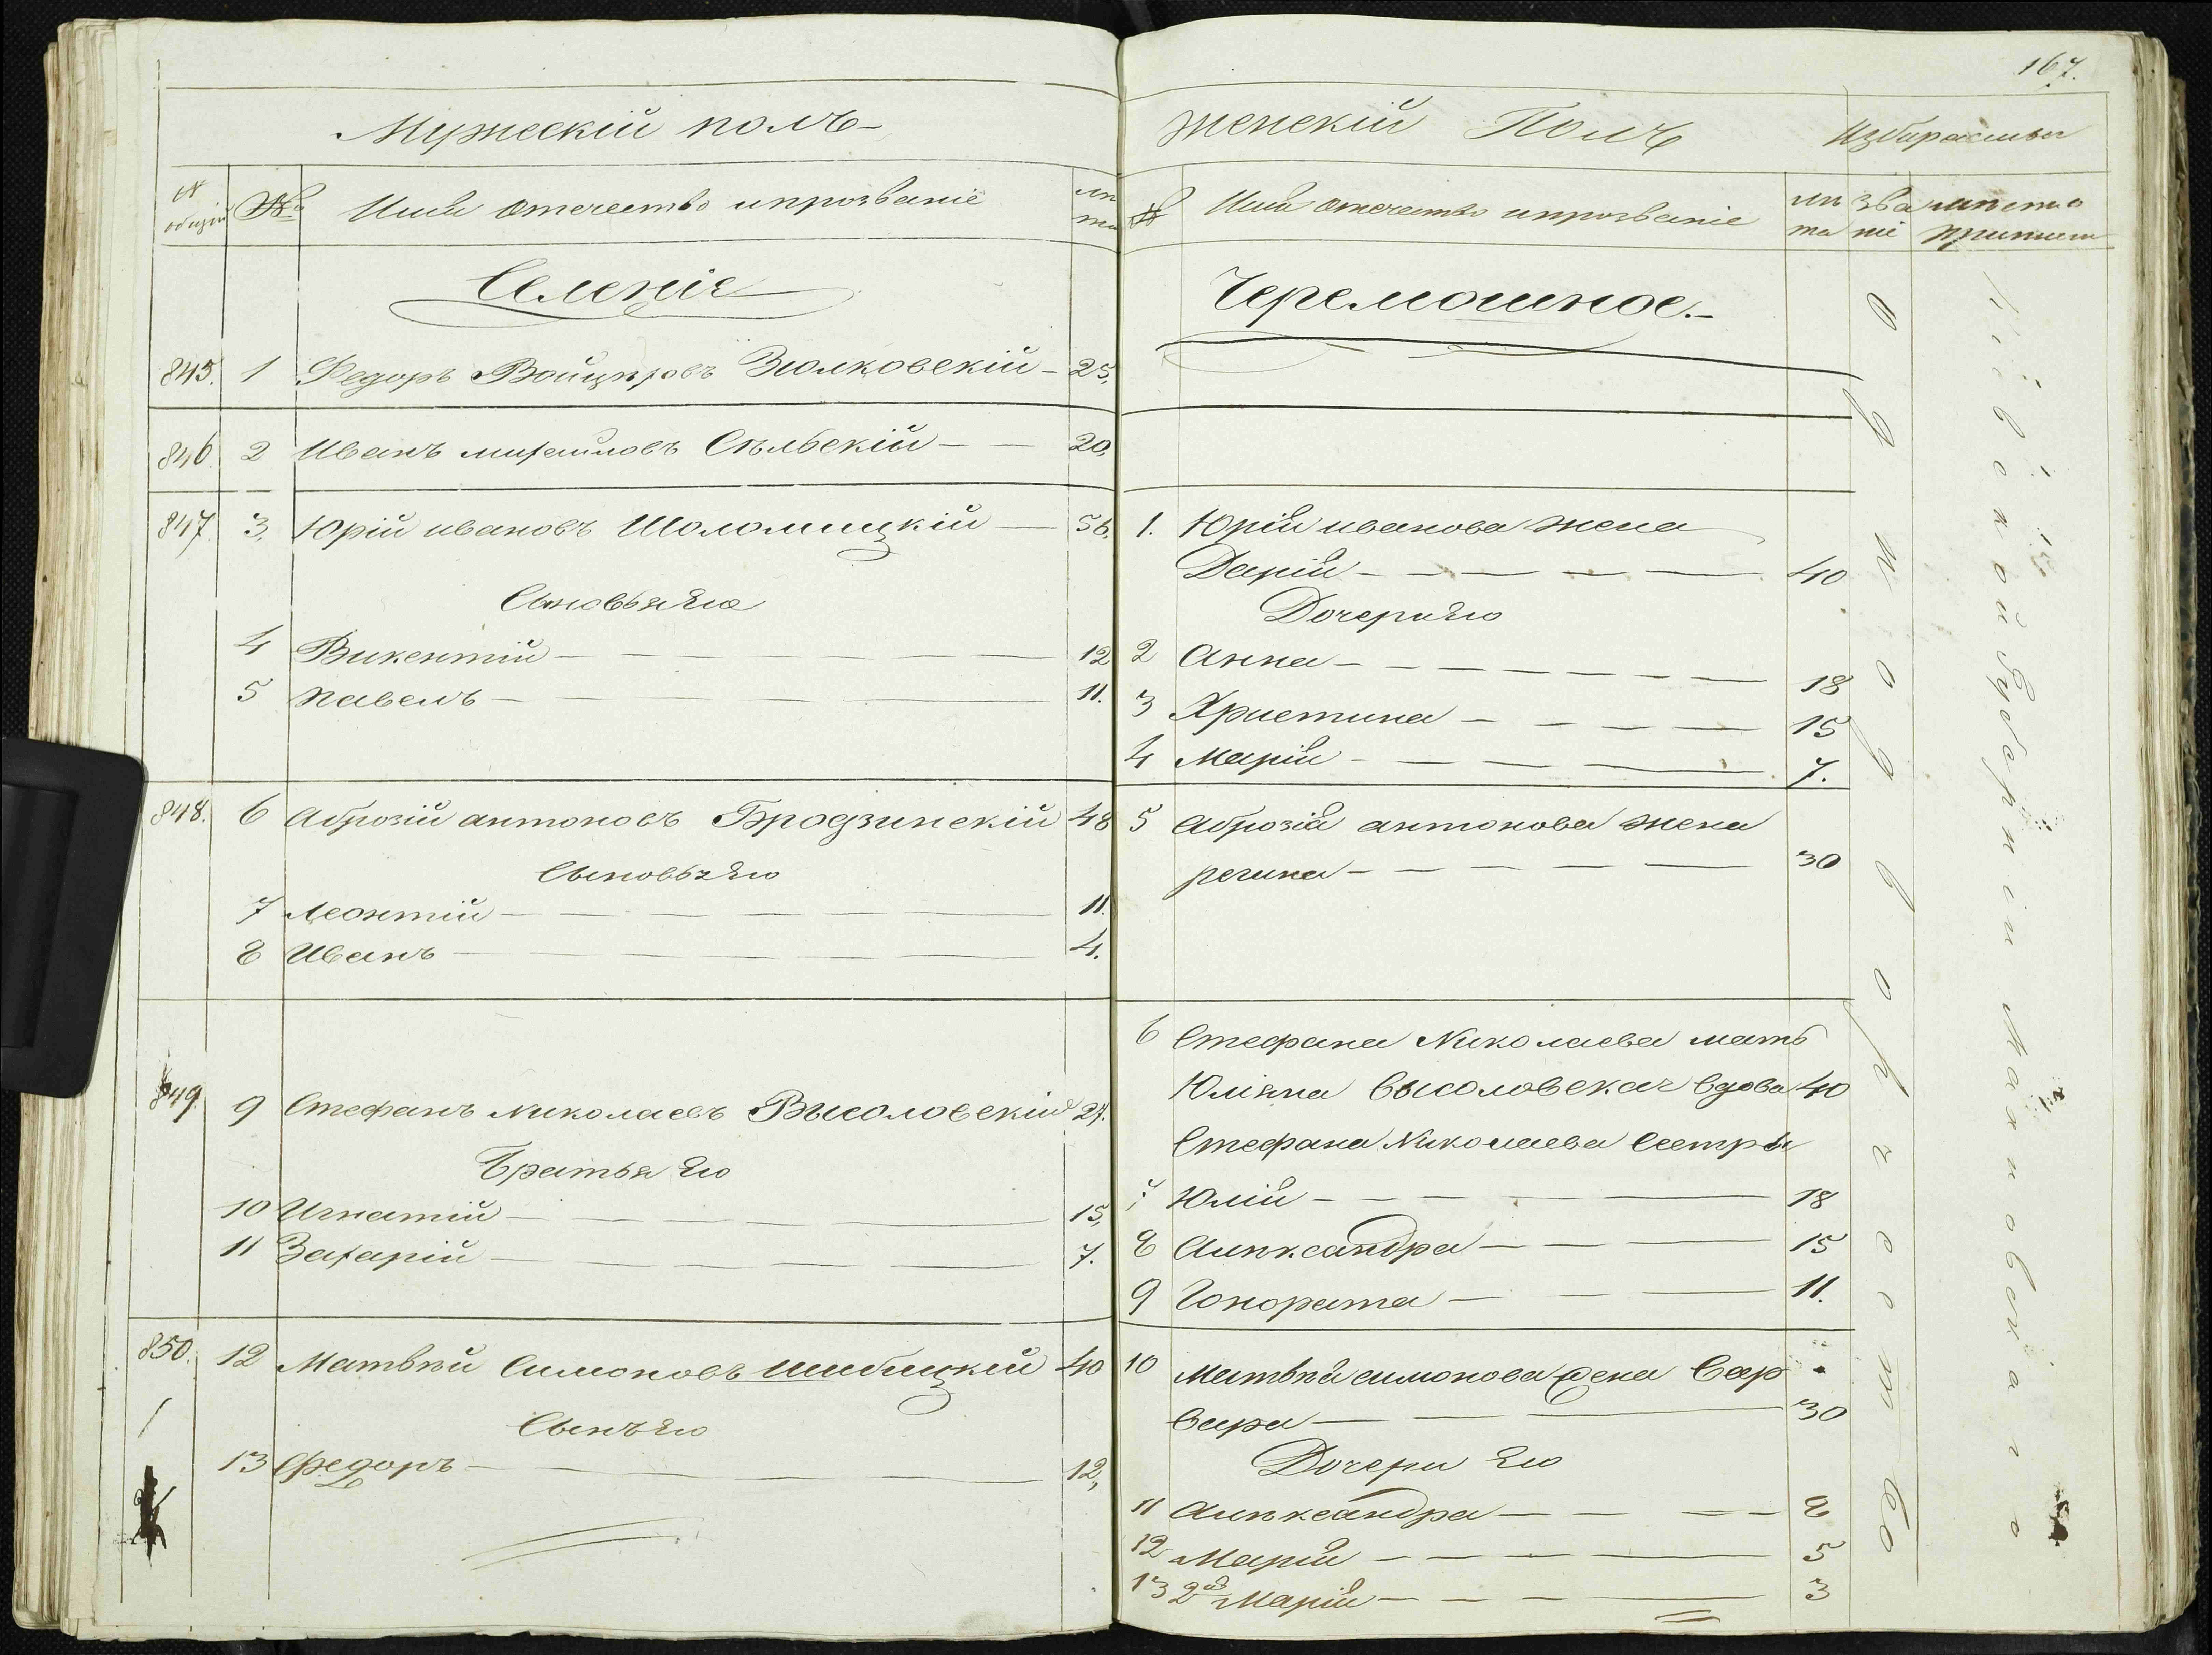 167.
Мужескій полъ
№ общій
№
Имя отечество ипрозваніе
лѣта
Селеніе
845. 1 Федоръ Войцѣховъ Зюлковскій 25.
846 2 Иванъ михайловъ Сѣльскій 20,
847 3, Юрій ивановъ Шоломицкій 56,
Сыновья Его
4 Викентій 12
5 павелъ 11.
848. 6 Аброзій антоновъ Бродзинскій 48
Сыновья Его
7 Леонтій 11.
8 Иванъ 4.
849 9 Стефанъ Николаевъ Высоловскій 27.
Братья Его
10 Игнатій 15,
11 Захарій 7.
850. 12 Матвѣй Симоновъ Шибицкій 40
Сынъ Его
13 Федоръ 12,
женскій Полъ
№
Имя отечество ипрозваніе
лѣта
зва
ніе
мѣсто
Черемошное.
1. Юрія иванова жена
Дарія 40
Дочери Его
2 Анна 18
3 Христина 15
4 Марія 7.
5 Аброзія антонова жена
регина 30
6 Стефана Николаева мать
Юліяна Высоловская вдова 40
Стефана Николаева Сестры
7 Юлія 18
8 Алѣксандра 15
9 Гонората 11.
10 Матвѣя симонова жена Вар
вара 30
Дочери Его
11 Алѣксандра 8
12 Марія 5
13 2ая Марія 3
Одно дворчество
Кіевской Губерніи Махновскаго